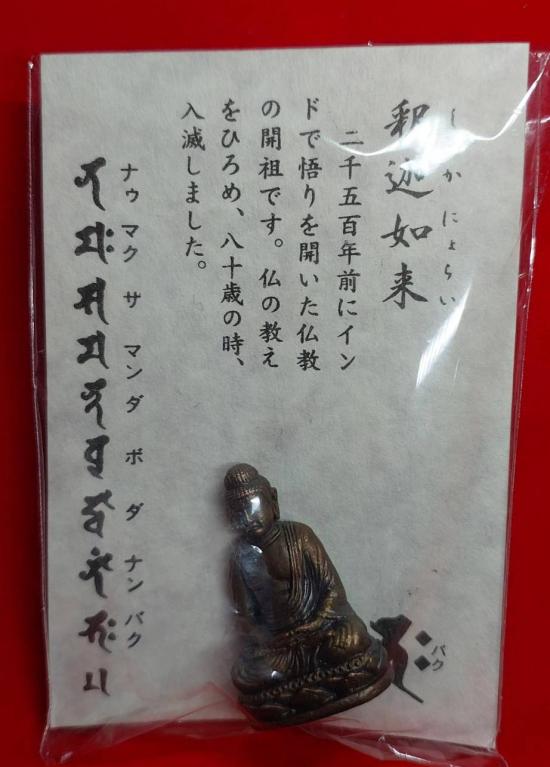 しゃかにょらい
釈迦如来
二千五百年前にイン
ドで悟りを開いた仏教
の開祖です。仏の教え
をひろめ、八十歳の時、
入滅しました。
ナゥ マク サ マンダ ボ ダ ナン バク
バク